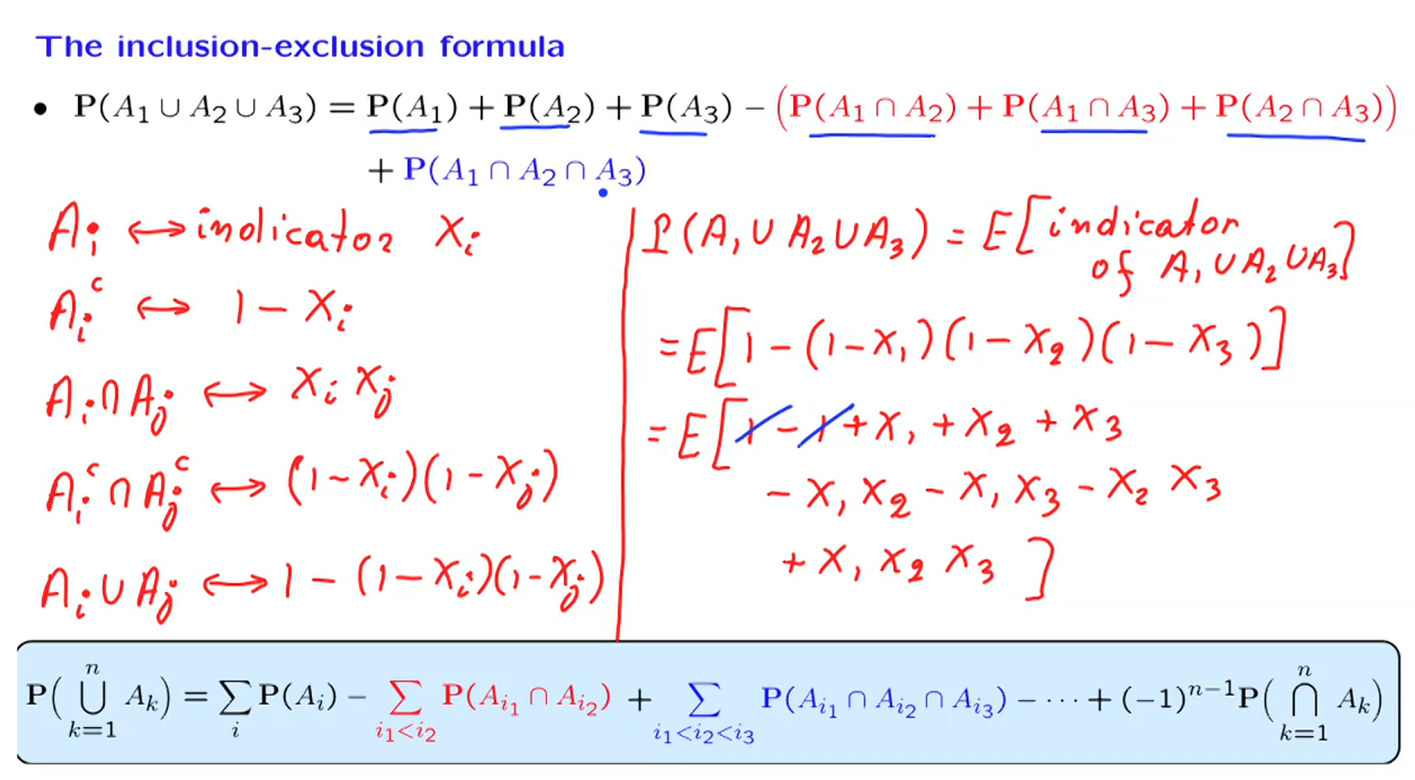 The inclusion-exclusion formula
• P(A₁ ∪ A₂ ∪ A₃) = P(A₁) + P(A₂) + P(A₃) − (P(A₁ ∩ A₂) + P(A₁ ∩ A₃) + P(A₂ ∩ A₃))
+ P(A₁ ∩ A₂ ∩ A₃)
Aᵢ ↔ indicator Xᵢ
Aᵢᶜ ↔ 1 − Xᵢ
Aᵢ ∩ Aⱼ ↔ Xᵢ Xⱼ
Aᵢᶜ ∩ Aⱼᶜ ↔ (1 − Xᵢ)(1 − Xⱼ)
Aᵢ ∪ Aⱼ ↔ 1 − (1 − Xᵢ)(1 − Xⱼ)
P(A₁ ∪ A₂ ∪ A₃) = E[indicator
of A₁ ∪ A₂ ∪ A₃]
= E[1 − (1 − X₁)(1 − X₂)(1 − X₃)]
= E[1 − 1 + X₁ + X₂ + X₃
− X₁ X₂ − X₁ X₃ − X₂ X₃
+ X₁ X₂ X₃ ]
P(⋃ₖ₌₁ⁿ Aₖ) = ∑ᵢ P(Aᵢ) − ∑_{i₁<i₂} P(A_{i₁} ∩ A_{i₂}) + ∑_{i₁<i₂<i₃} P(A_{i₁} ∩ A_{i₂} ∩ A_{i₃}) − ⋯ + (−1)ⁿ⁻¹P(⋂ₖ₌₁ⁿ Aₖ)